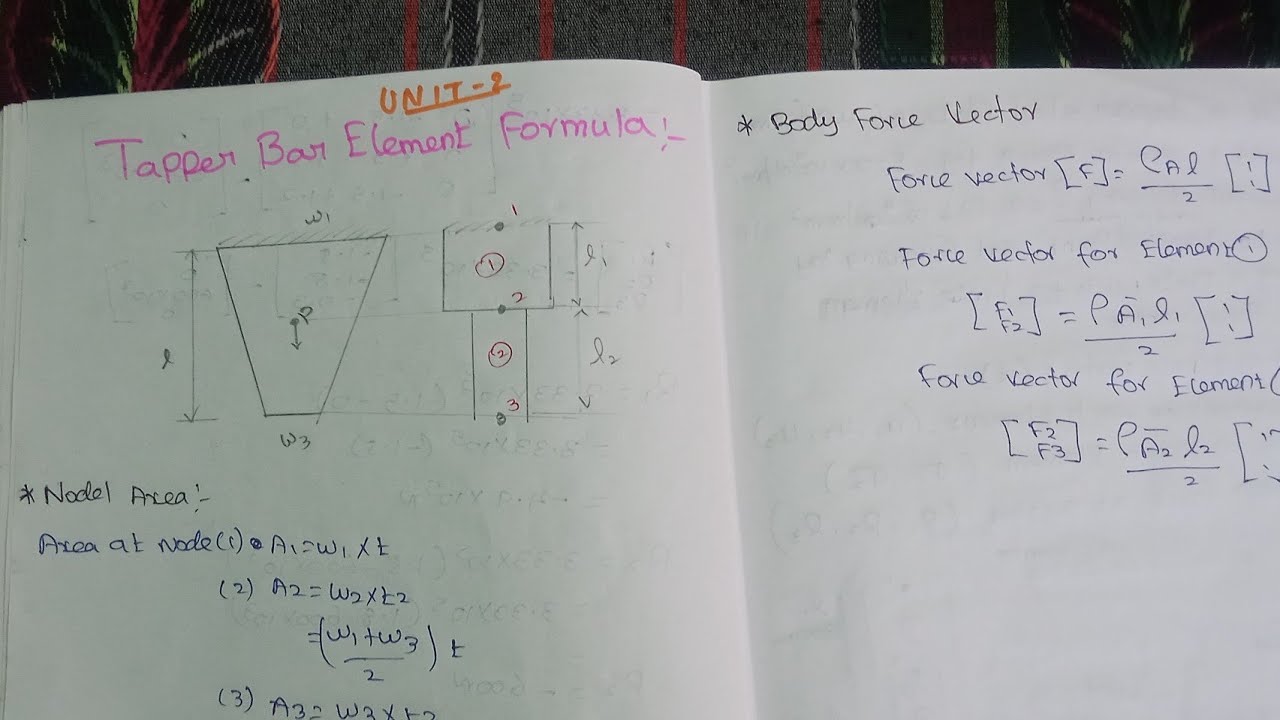 UNIT-2
Tapper Bar Element Formula:-
w1
1
①
l1
2
P
l
②
l2
3
w3
* Nodel Area:-
Area at Node(1) A1=w1×t
(2) A2=w2×t2
=(w1+w3/2) t
(3) A3=w3×t3
* Body Force Vector
Force vector [F]= ρAl/2 [1 1]
Force vector for Element①
[F1 F2] = ρĀ1l1/2 [1 1]
Force vector for Element(
[F2 F3] = ρĀ2l2/2 [1